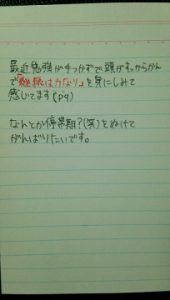 最近勉強が手つかずで頭がすっからかん
で「継続は力なり」を身にしみて
感じてます(p q)
なんとか停滞期?(笑)をぬけて
がんばりたいです。